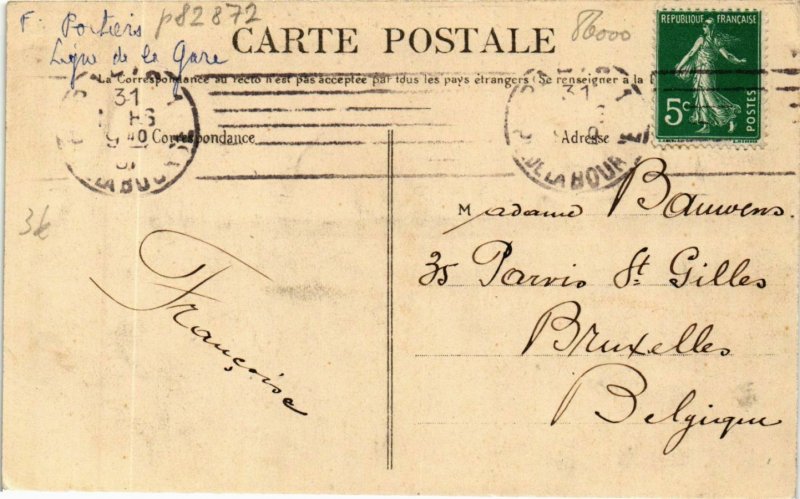 F. Poitiers p82872
Ligne de la Gare
CARTE POSTALE
86000
RÉPUBLIQUE FRANÇAISE
5c
POSTES
La Correspondance au recto n'est pas acceptée par tous les pays étrangers (Se renseigner à la
31
9 40
Correspondance
Adresse
31
DE LA BOU
Madame Bauwens.
35 Parvis St. Gilles
Bruxelles
Belgique
Françoise